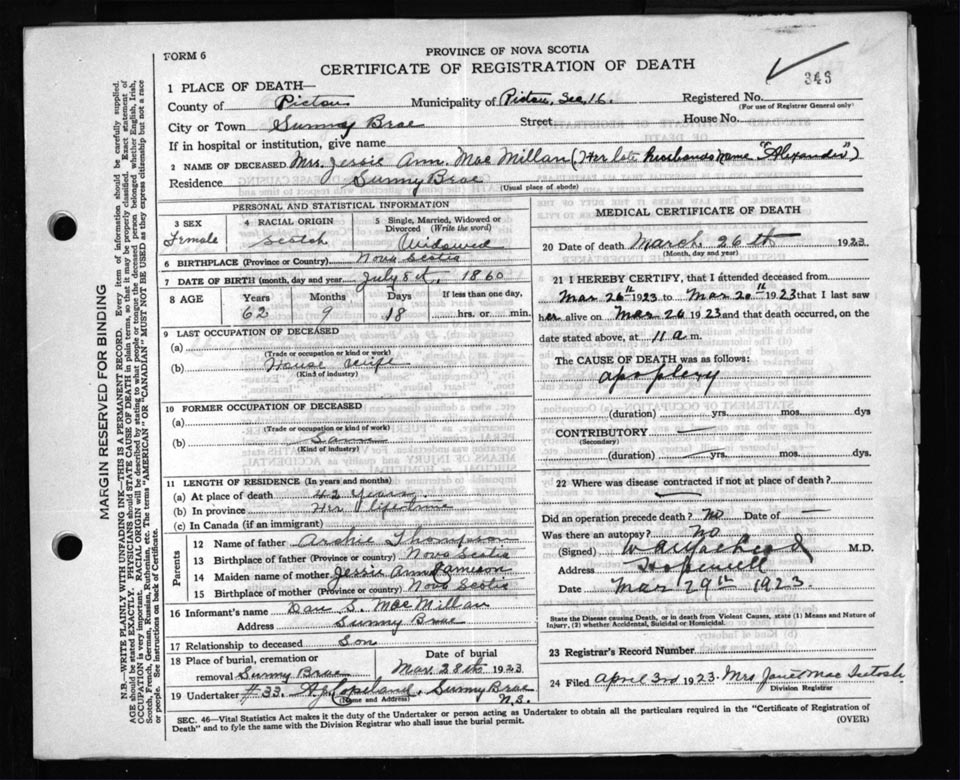 FORM 6
PROVINCE OF NOVA SCOTIA
CERTIFICATE OF REGISTRATION OF DEATH
343
1 PLACE OF DEATH—
County of Pictou Municipality of Pictou, Sec, 16. Registered No.
(For use of Registrar General only)
City or Town Sunny Brae Street House No.
If in hospital or institution, give name
2 NAME OF DECEASED Mrs. Jessie Ann MacMillan (Her late husbands name "Alexander")
Residence Sunny Brae
(Usual place of abode)
PERSONAL AND STATISTICAL INFORMATION
3 SEX
Female
4 RACIAL ORIGIN
Scotch
5 Single, Married, Widowed or Divorced (Write the word)
Widowed
6 BIRTHPLACE (Province or Country) Nova Scotia
7 DATE OF BIRTH (month, day and year) July 8th, 1860
8 AGE Years Months Days If less than one day,
62 9 18 hrs. or min.
9 LAST OCCUPATION OF DECEASED
(a)
(Trade or occupation or kind or work)
(b) House Wife
(Kind of industry)
10 FORMER OCCUPATION OF DECEASED
(a)
(Trade or occupation or kind of work)
(b) Same
(Kind of industry)
11 LENGTH OF RESIDENCE (In years and months)
(a) At place of death 42 Years.
(b) In province Her lifetime
(c) In Canada (if an immigrant)
Parents
12 Name of father Archie Thompson
13 Birthplace of father (Province or country) Nova Scotia
14 Maiden name of mother Jessie Ann Cameson
15 Birthplace of mother (Province or country) Nova Scotia
16 Informant's name Dan S. MacMillan
Address Sunny Brae
17 Relationship to deceased Son
18 Place of burial, cremation or removal Sunny Brae
Date of burial
Mar. 28th 1923
19 Undertaker #33. A.J. Copeland, Sunny Brae N.S.
(Name and Address)
MEDICAL CERTIFICATE OF DEATH
20 Date of death March 26th 1923
(Month, day and year)
21 I HEREBY CERTIFY, that I attended deceased from
Mar 26th 1923 to Mar 26th 1923 that I last saw
her alive on Mar 26 1923 and that death occurred, on the
date stated above, at 11 a m.
The CAUSE OF DEATH was as follows:
apoplexy
(duration) yrs. mos. dys
CONTRIBUTORY —
(Secondary)
(duration) yrs. mos. dys.
22 Where was disease contracted if not at place of death?
Did an operation precede death? No Date of —
Was there an autopsy? No
(Signed) M.D.
Address Hopewell
Date Mar 29th 1923.
State the Disease causing Death, or in death from Violent Causes, state (1) Means and Nature of Injury, (2) whether Accidental, Suicidal or Homicidal.
23 Registrar's Record Number
24 Filed April 3rd 1923 Mrs Janet MacIntosh
Division Registrar
SEC. 46—Vital Statistics Act makes it the duty of the Undertaker or person acting as Undertaker to obtain all the particulars required in the "Certificate of Registration of
Death" and to fyle the same with the Division Registrar who shall issue the burial permit.
(OVER)
MARGIN RESERVED FOR BINDING
N.B.—WRITE PLAINLY WITH UNFADING INK—THIS IS A PERMANENT RECORD. Every item of information should be carefully supplied.
AGE should be stated EXACTLY. PHYSICIANS should STATE CAUSE OF DEATH in plain terms, so that it may be properly classified. Exact statement of
OCCUPATION is very important. RACIAL ORIGIN will be described by stating to what people or tongue the deceased person belonged whether English, Irish,
Scotch, French, German, Russian, Ruthenian, etc. The terms "AMERICAN" OR "CANADIAN" MUST NOT BE USED as they express citizenship but not a race
or people. See instructions on back of Certificate.